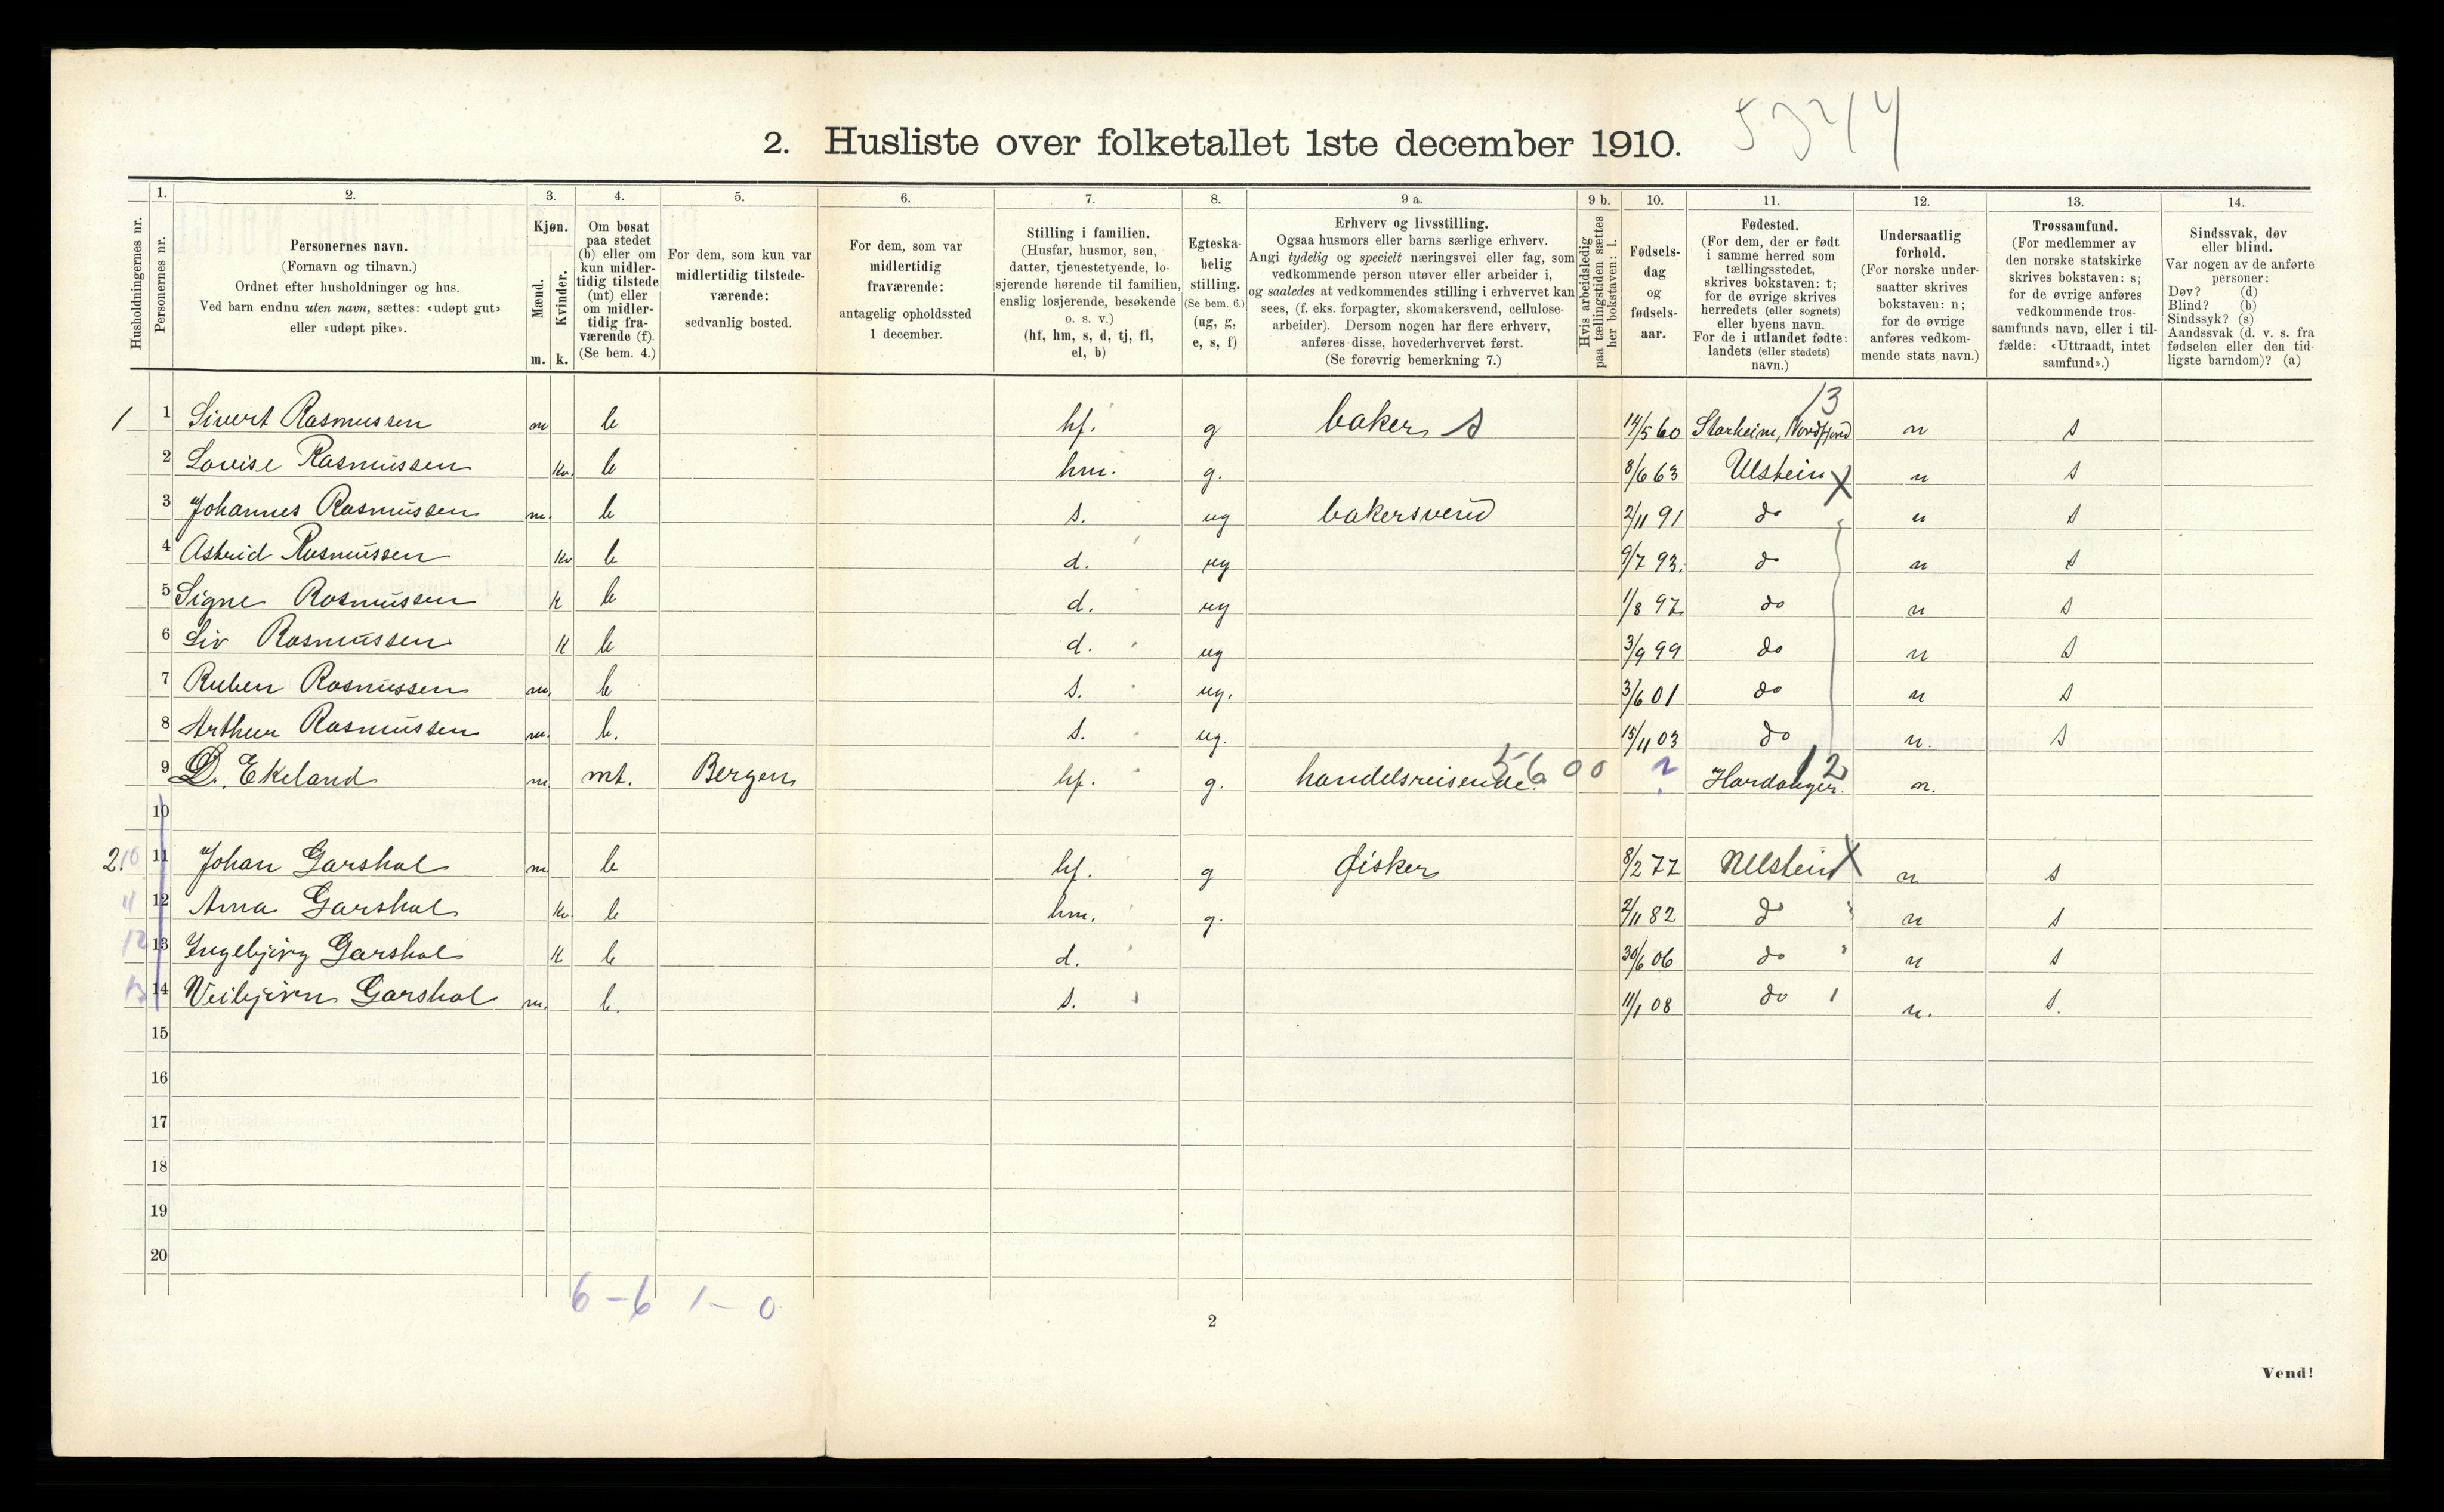 2. Husliste over folketallet 1ste december 1910.
Husholdningernes nr.
1.
Personernes nr.
2.
Personernes navn.
(Fornavn og tilnavn.)
Ordnet efter husholdninger og hus.
Ved barn endnu uten navn, sættes: «udøpt gut»
eller «udøpt pike».
3.
Kjøn.
Mænd.
Kvinder.
m. k.
4.
Om bosat
paa stedet
(b) eller om
kun midler-
tidig tilstede
(mt) eller
om midler-
tidig fra-
værende (f).
(Se bem. 4.)
5.
For dem, som kun var
midlertidig tilstede-
værende:
sedvanlig bosted.
6.
For dem, som var
midlertidig
fraværende:
antagelig opholdssted
1 december.
7.
Stilling i familien.
(Husfar, husmor, søn,
datter, tjenestetyende, lo-
sjerende hørende til familien,
enslig losjerende, besøkende
o. s. v.)
(hf, hm, s, d, tj, fl,
el, b)
8.
Egteska-
belig
stilling.
(Se bem. 6.)
(ug, g,
e, s, f)
9 a.
Erhverv og livsstilling.
Ogsaa husmors eller barns særlige erhverv.
Angi tydelig og specielt næringsvei eller fag, som
vedkommende person utøver eller arbeider i,
og saaledes at vedkommendes stilling i erhvervet kan
sees, (f. eks. forpagter, skomakersvend, cellulose-
arbeider). Dersom nogen har flere erhverv,
anføres disse, hovederhvervet først.
(Se forøvrig bemerkning 7.)
9 b.
Hvis arbeidsledig
paa tællingstiden sættes
her bokstaven: l.
10.
Fødsels-
dag
og
fødsels-
aar.
11.
Fødested.
(For dem, der er født
i samme herred som
tællingsstedet,
skrives bokstaven: t;
for de øvrige skrives
herredets (eller sognets)
eller byens navn.
For de i utlandet fødte:
landets (eller stedets)
navn.)
12.
Undersaatlig
forhold.
(For norske under-
saatter skrives
bokstaven: n;
for de øvrige
anføres vedkom-
mende stats navn.)
13.
Trossamfund.
(For medlemmer av
den norske statskirke
skrives bokstaven: s;
for de øvrige anføres
vedkommende tros-
samfunds navn, eller i til-
fælde: «Uttraadt, intet
samfund».)
14.
Sindssvak, døv
eller blind.
Var nogen av de anførte
personer:
Døv? (d)
Blind? (b)
Sindssyk? (s)
Aandssvak (d. v. s. fra
fødselen eller den tid-
ligste barndom)? (a)
13
1 1 Sivert Rasmussen m b hf. g baker s 14/5 60 Starheim, Nordfjord n s
2 Lovise Rasmussen kv. b hm. g. 8/6 63 Ulstein X n s
3 Johannes Rasmussen m. b s. ug bakersvend 2/11 91 do n s
4 Astrid Rasmussen kv b d. ug 9/7 93. do n s
5 Signe Rasmussen k b d. ug 1/8 97 do n s
6 Liv Rasmussen k b d. ug 3/9 99 do n s
7 Ruben Rasmussen m. b s. ug. 3/6 01 do n s
8 Arthur Rasmussen m. b. s. ug. 15/11 03 do n. s
9 D. Ekeland m. mt. Bergen hf. g. handelsreisende. 5600 ? Hardanger. 12 n.
10
2. 10 11 Johan Garshol m b hf. g fisker 8/2 77 Ulstein X n s
11 12 Anna Garshol kv b hm. g. 2/11 82 do n s
12 13 Ingebjørg Garshol k b d. 30/6 06 do n s
13 14 Veibjørn Garshol m. b. s. 11/1 08 do n. s.
15
16
17
18
19
20
6 – 6 1 – 0
2
Vend!